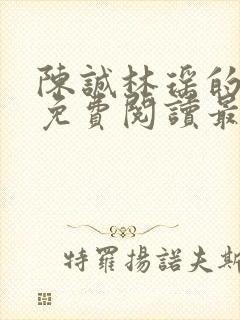 陳誠林瑤的
免費閱讀最
特羅揚諾夫斯